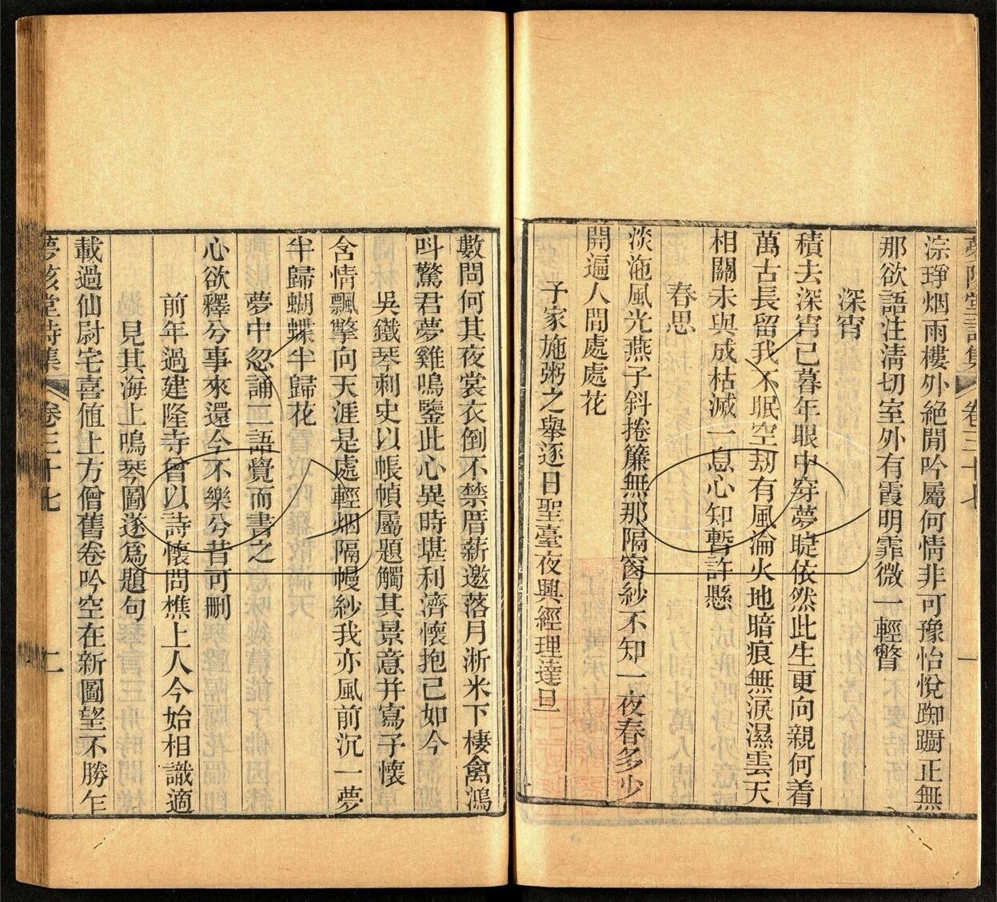 淙琤烟雨樓外絶閒吟屬何情非可豫怡悅踟躕正無
那欲語注清切室外有霞明霏微一輕瞥
深宵
積去深宵已暮年眼中穿夢睫依然此生更向親何着
萬古長留我不眠空刼有風淪火地暗痕無淚濕雲天
相關未與成枯滅一息心知暫許懸
春思
淡沲風光燕子斜捲簾無那隔窗紗不知一夜春多少
開遍人間處處花
予家施粥之舉逐日聖臺夜興經理達旦
數問何其夜裳衣倒不禁厝薪邀落月淅米下棲禽鴻
叫驚君夢雞鳴鑒此心異時堪利濟懷抱已如今
吳鐵琴刺史以帳幀屬題觸其景意并寫予懷
含情飄擎向天涯是處輕烟隔幔紗我亦風前沉一夢
半歸蝴蝶半歸花
夢中忽誦二語覺而書之
心欲釋兮事來還今不樂兮昔可刪
前年過建隆寺曾以詩懷問樵上人今始相識適
見其海上鳴琴圖遂爲題句
載過仙尉宅喜値上方僧舊卷吟空在新圖望不勝乍
夢陔堂詩集 卷三十七 二